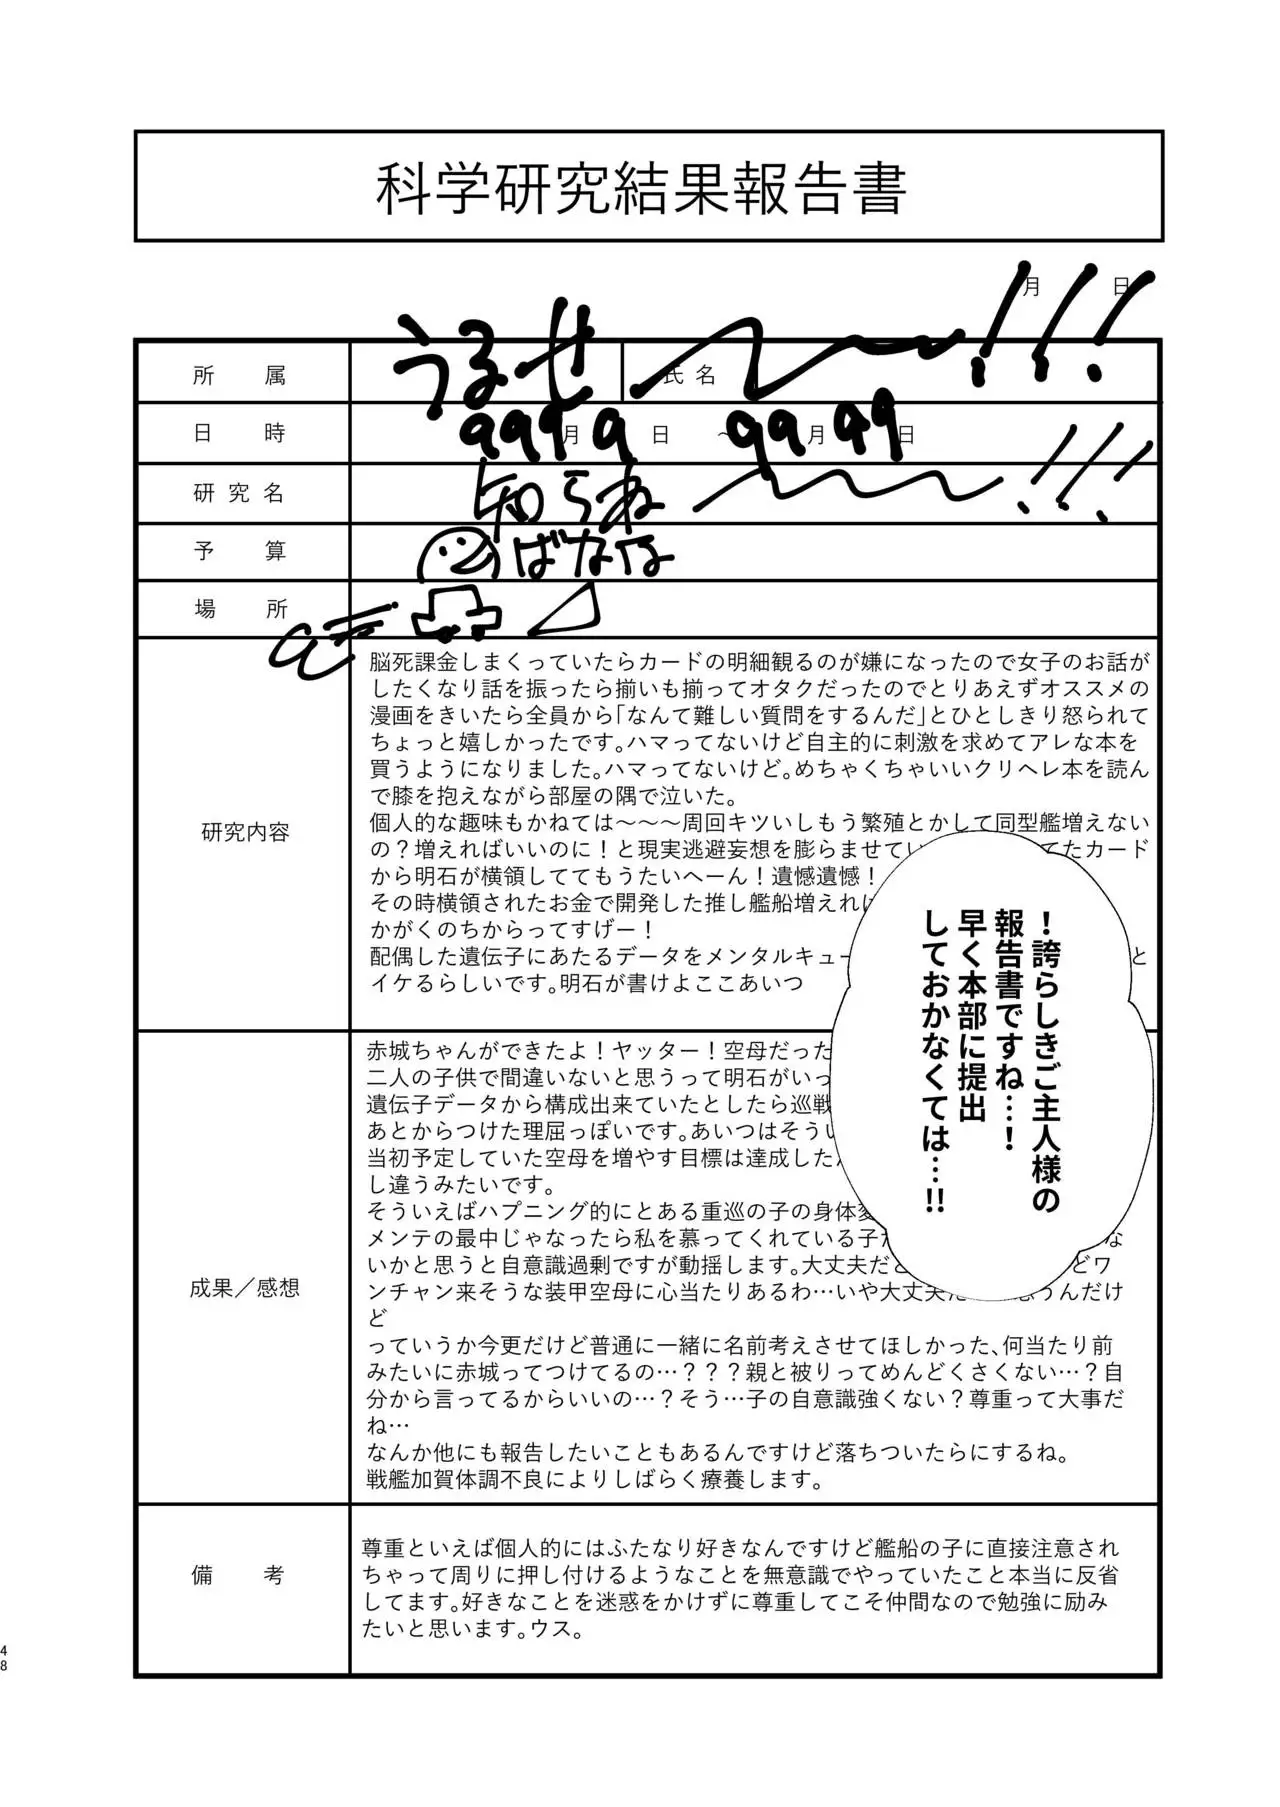 科学研究結果報告書
月 日
うるせ〜〜!!!
所属
氏名
日時
9999月9日 〜 99月99日
研究名
知らね〜〜!!!
予算
ばなな
場所
研究内容
脳死課金しまくっていたらカードの明細観るのが嫌になったので女子のお話が
したくなり話を振ったら揃いも揃ってオタクだったのでとりあえずオススメの
漫画をきいたら全員から「なんて難しい質問をするんだ」とひとしきり怒られて
ちょっと嬉しかったです。ハマってないけど自主的に刺激を求めてアレな本を
買うようになりました。ハマってないけど。めちゃくちゃいいクリヘレ本を読ん
で膝を抱えながら部屋の隅で泣いた。
個人的な趣味もかねては〜〜〜周回キツいしもう繁殖とかして同型艦増えない
の?増えればいいのに!と現実逃避妄想を膨らませてい
てたカード
から明石が横領しててもうたいへーん!遺憾遺憾!
その時横領されたお金で開発した推し艦船増えれは
かがくのちからってすげー!
配偶した遺伝子にあたるデータをメンタルキュー
と
イケるらしいです。明石が書けよここあいつ
!誇らしきご主人様の
報告書ですね…!
早く本部に提出
しておかなくては…!!
成果/感想
赤城ちゃんができたよ!ヤッター!空母だった
二人の子供で間違いないと思うって明石がいっ
遺伝子データから構成出来ていたとしたら巡戦
あとからつけた理屈っぽいです。あいつはそうい
当初予定していた空母を増やす目標は達成した
し違うみたいです。
そういえばハプニング的にとある重巡の子の身体変
メンテの最中じゃなったら私を慕ってくれている子だ
な
いかと思うと自意識過剰ですが動揺します。大丈夫だと
どワ
ンチャン来そうな装甲空母に心当たりあるわ…いや大丈夫だ
思うんだけ
ど
っていうか今更だけど普通に一緒に名前考えさせてほしかった、何当たり前
みたいに赤城ってつけてるの…???親と被りってめんどくさくない…?自
分から言ってるからいいの…?そう…子の自意識強くない?尊重って大事だ
ね…
なんか他にも報告したいこともあるんですけど落ちついたらにするね。
戦艦加賀体調不良によりしばらく療養します。
備考
尊重といえば個人的にはふたなり好きなんですけど艦船の子に直接注意され
ちゃって周りに押し付けるようなことを無意識でやっていたこと本当に反省
してます。好きなことを迷惑をかけずに尊重してこそ仲間なので勉強に励み
たいと思います。ウス。
48